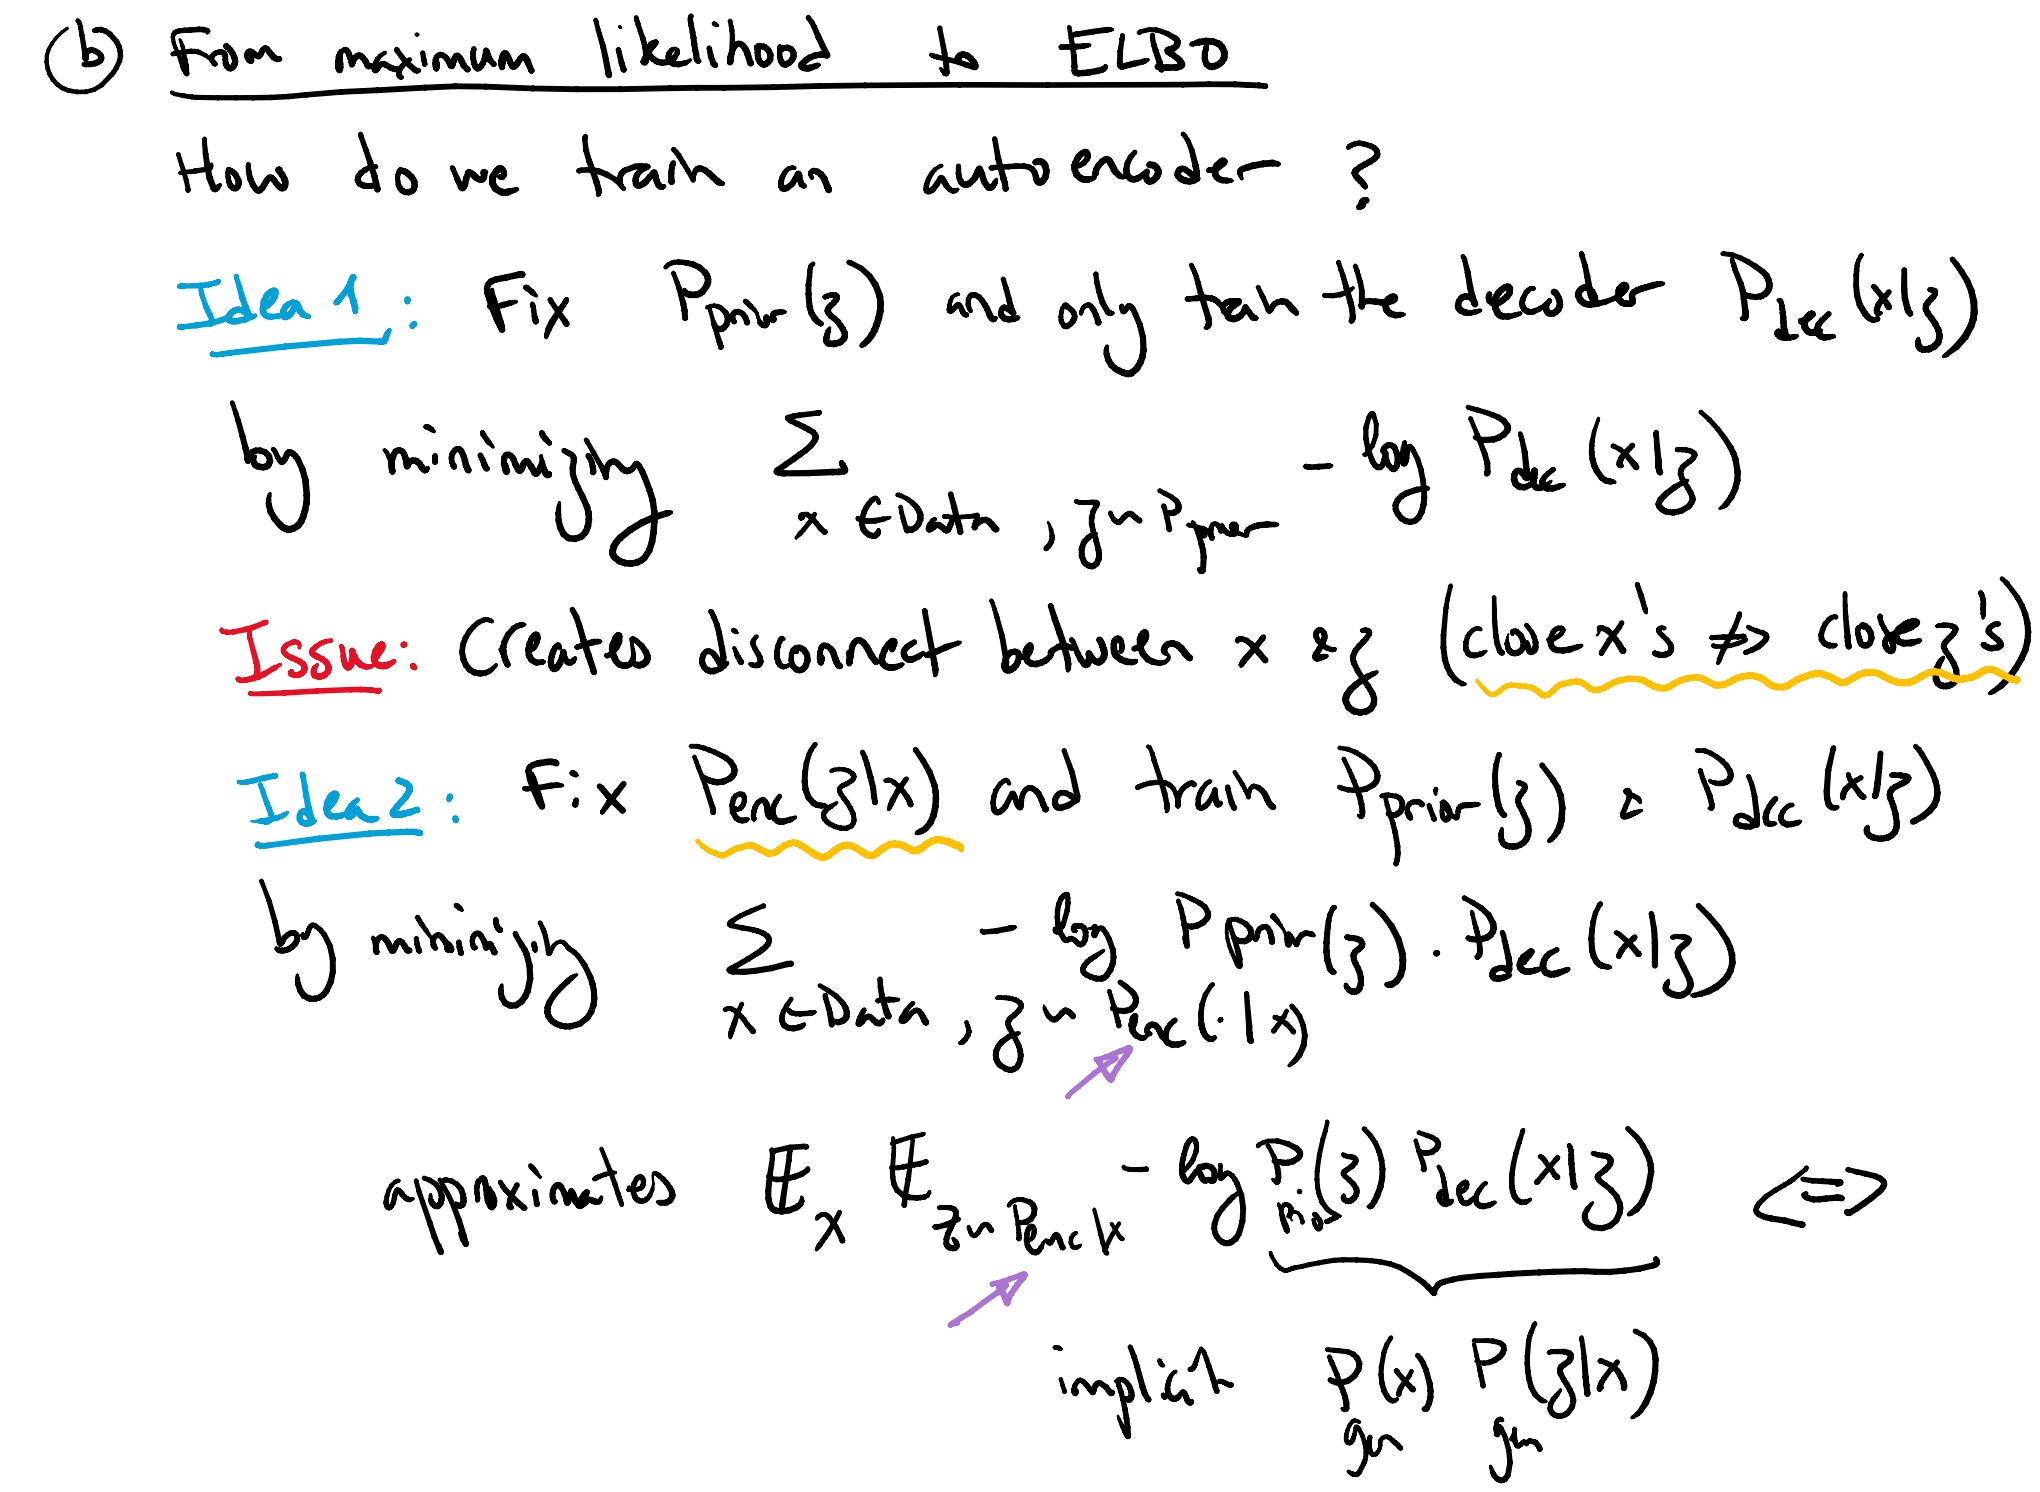 (b) From maximum likelihood to ELBO
How do we train an autoencoder ?
Idea 1: Fix P_prior(z) and only train the decoder P_dec(x|z)
by minimizing Σ_{x ∈ Data, z ~ P_prior} - log P_dec(x|z)
Issue: Creates disconnect between x & z (close x's ⇏ close z's)
Idea 2: Fix P_enc(z|x) and train P_prior(z) & P_dec(x|z)
by minimizing Σ_{x ∈ Data, z ~ P_enc(·|x)} - log P_prior(z) · P_dec(x|z)
approximates 𝔼_x 𝔼_{z ~ P_enc|x} - log P_prior(z) P_dec(x|z) ⇔
implicit P_gen(x) P_gen(z|x)